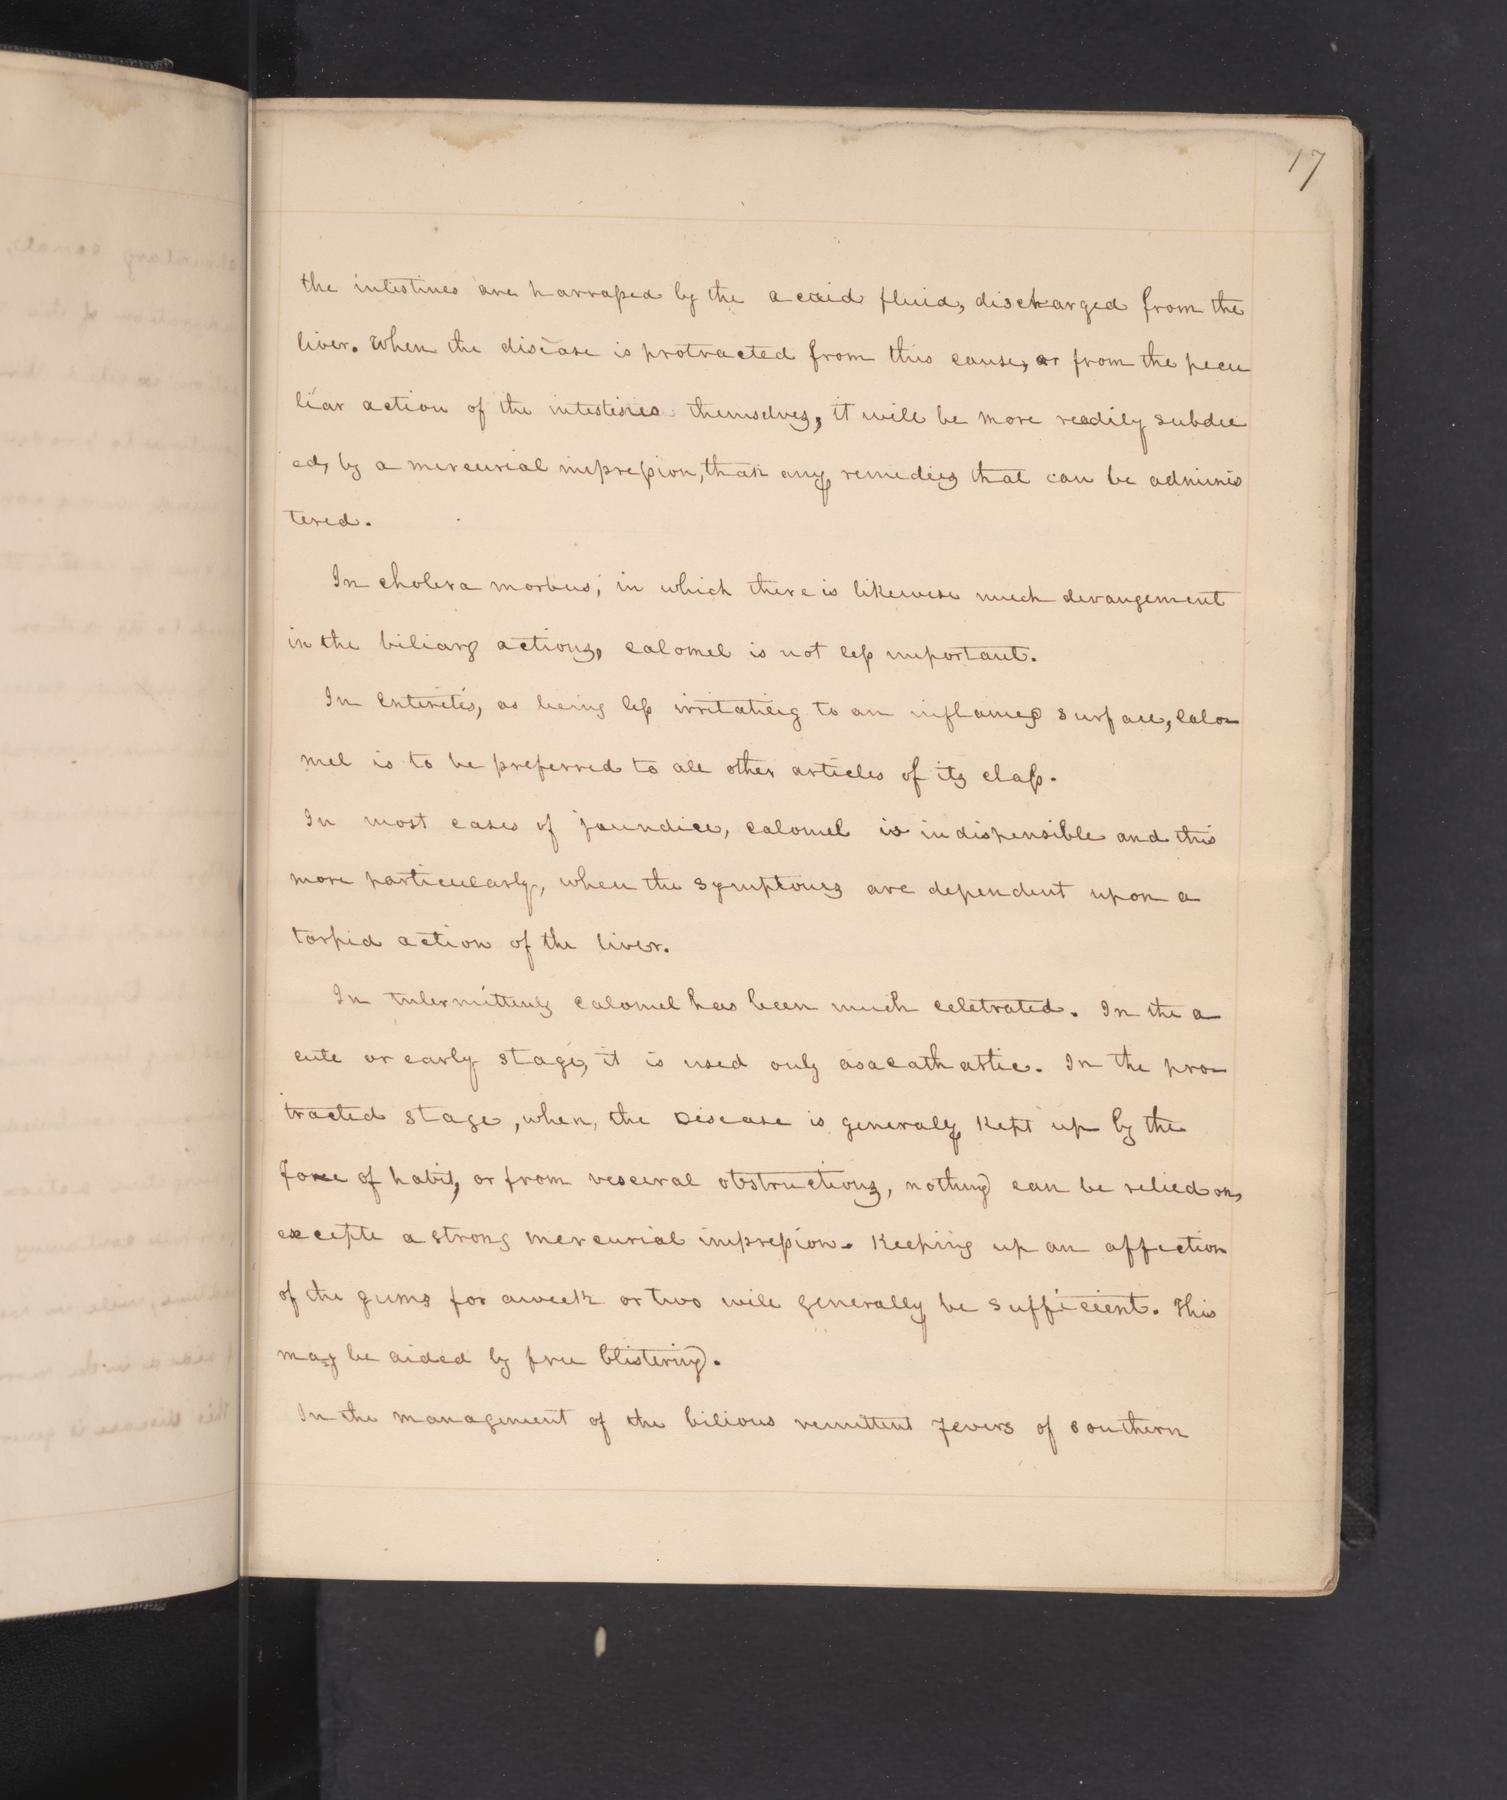 17
the intestines are harrassed by the acrid fluid, discharged from the
liver. When the disease is protracted from this cause, or from the pecu
liar action of the intestines themselves, it will be more readily subdu
ed, by a mercurial impression, than any remedies that can be adminis
tered.
In cholera morbus, in which there is likewise much derangement
in the biliary actions, calomel is not less important.
In enteritis, as being less irritating to an inflamed surface, calo-
mel is to be preferred to all other articles of its class.
In most cases of jaundice, calomel is indispensible and this
more particularly, when the symptoms are dependent upon a
torpid action of the liver.
In intermittents calomel has been much celebrated. In the a
cute or early stage, it is used only as a cathartic. In the pro-
tracted stage, when, the Disease is generaly Kept up by the
force of habit, or from vesceral obstructions, nothing can be relied on,
excepte a strong mercurial impression. Keeping up an affection
of the gums for a week or two will generally be sufficient. This
may be aided by free blistering.
In the management of the bilious remittent fevers of southern